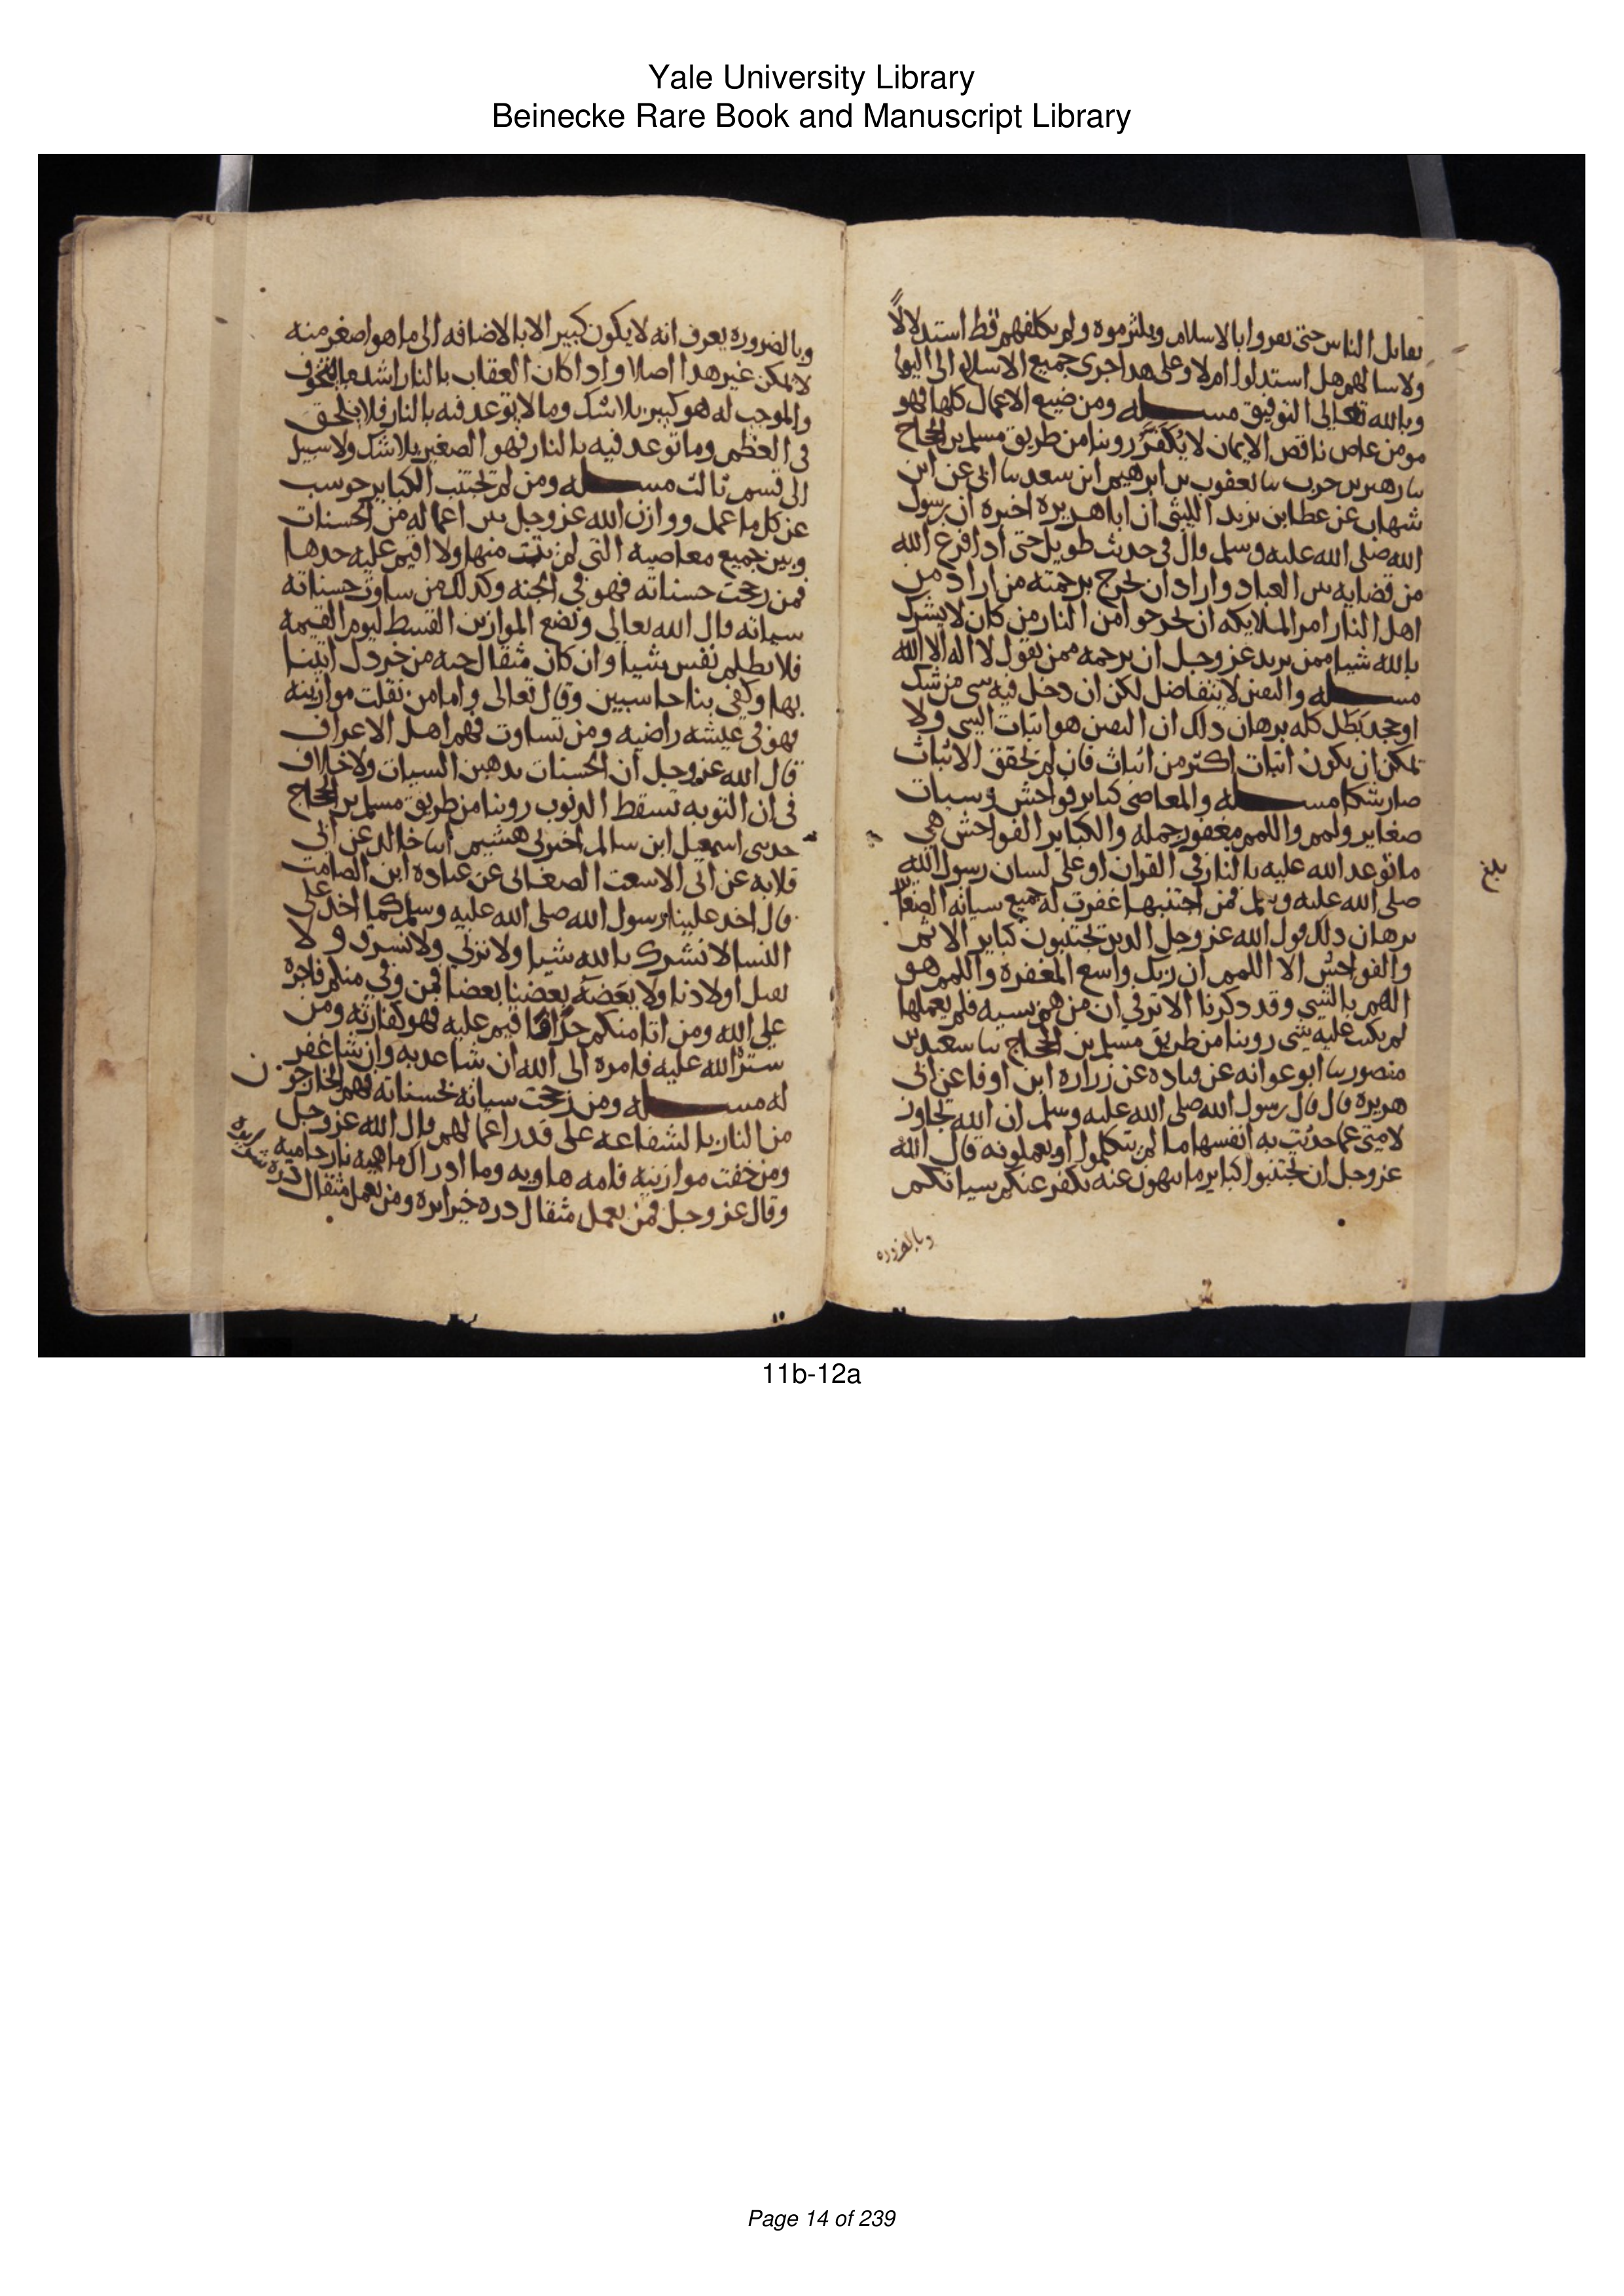 Yale University Library
Beinecke Rare Book and Manuscript Library
يقاتل الناس حتى يقروا بالاسلام ويلتزموه ولم يكلفهم قط استدلالاً
ولا سالهم هل استدلوا ام لا وعلى هدا جرى جميع الاسلام الى اليوم
وبالله تعالى التوفيق مسله ومن ضيع الاعمال كلها فهو
مومن عاص ناقص الايمان لا يُكَفَّرُ روينا من طريق مسلم بن الحجاج
سا زهير بن حرب سا يعقوب بن ابرهيم ابن سعد سا ابي عن ابن
شهاب عن عطا ابن يزيد الليثي ان ابا هريره اخبره ان رسول
الله صلى الله عليه وسلم قال في حديث طويل حتى ادا فرغ الله
من قضايه بين العباد واراد ان يخرج برحمته من اراد من
اهل النار امر الملايكه ان يخرجوا من النار من كان لا يشرك
بالله شيا ممن يريد عز وجل ان يرحمه ممن يقول لا اله الا الله
مسله واليقين لا يتفاضل لكن ان دخل فيه شي من شك
او جحد بَطَل كله برهان دلك ان اليقين هو اثبات الشي ولا
يمكن ان يكون اثبات اكثر من اثبات فان لم يحقق الاثبات
صار شكا مسله والمعاصي كباير فواحش وسيات
صغاير ولمم واللمم مغفور جمله والكباير الفواحش هي
ما توعد الله عليه بالنار في القران او على لسان رسول الله
صلى الله عليه وسلم فمن اجتنبها غفرت له جميع سياته الصغار
برهان دلك قول الله عز وجل الدين يجتنبون كباير الاثم
والفواحش الا اللمم ان ربك واسع المغفره واللمم هو
الهم بالشي وقد دكرنا الاثر في ان من هم بسيه فلم يعملها
لم يكتب عليه شي روينا من طريق مسلم بن الحجاج سا سعيد بن
منصور سا ابو عوانه عن قتاده عن زراره ابن اوفا عن ابي
هريره قال قال رسول الله صلى الله عليه وسلم ان الله تجاوز
لامتي عما حدثت به انفسها ما لم يتكلموا او يعملو به قال الله
عز وجل ان تجتنبوا كباير ما تنهون عنه نكفر عنكم سياتكم
وبالضروره
بلغ
وبالضروره يعرف انه لا يكون كبير الا بالاضافه الى ما هو اصغر منه
لا يمكن غير هدا اصلا وادا كان العقاب بالنار اشد ما
والموجب له هو كبير بلا شك وما لا توعد فيه بالنار فلا يلحق
في العظم وما توعد فيه بالنار فهو الصغير بلا شك ولا سبيل
الى قسم ثالث مسله ومن لم يجتنب الكباير حوسب
عن كل ما عمل ووازن الله عز وجل بين اعماله من الحسنات
وبين جميع معاصيه التي لم يتب منها ولا اقيم عليه حدها
فمن رجحت حسناته فهو في الجنه وكدلك من ساوت حسناته
سياته قال الله تعالى ونضع الموازين القسط ليوم القيمه
فلا تظلم نفس شيا وان كان مثقال حبه من خردل اتينا
بها وكفى بنا حاسبين وقال تعالى واما من ثقلت موازينه
فهو في عيشه راضيه ومن تساوت فهم اهل الاعراف
قال الله عز وجل ان الحسنات يدهبن السيات ولا خلاف
في ان التوبه تسقط الدنوب روينا من طريق مسلم بن الحجاج
حدثني اسمعيل ابن سالم اخبرني هشيم اسا خالد عن ابي
قلابه عن ابي الاشعث الصنعاني عن عباده ابن الصامت
قال اخد علينا رسول الله صلى الله عليه وسلم كما اخد على
النسا الا نشرك بالله شيا ولا نزني ولا نسرق ولا
نقتل اولادنا ولا يَعْضَه بعضنا بعضا فمن وفي منكم فاجره
على الله ومن اتا منكم حدًّا فاقيم عليه فهو كفارته ومن
ستره الله عليه فامره الى الله ان شا عدبه وان شا غفر
له مسله ومن رجحت سياته بحسناته فهم الخارجون
من النار بالشفاعه على قدر اعمالهم قال الله عز وجل
ومن خفت موازينه فامه هاويه وما ادراك ما هيه نار حاميه
وقال عز وجل فمن يعمل مثقال دره خيرا يره ومن يعمل مثقال دره شرا يره
11b-12a
Page 14 of 239